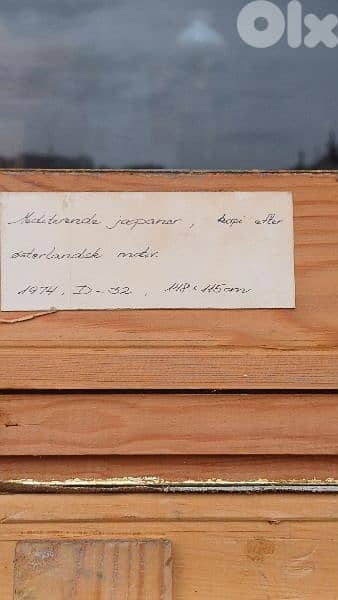 OLX
Mediterende japaner, kopi efter
østerlandsk motiv.
1974, D-32, 148 x 115 cm